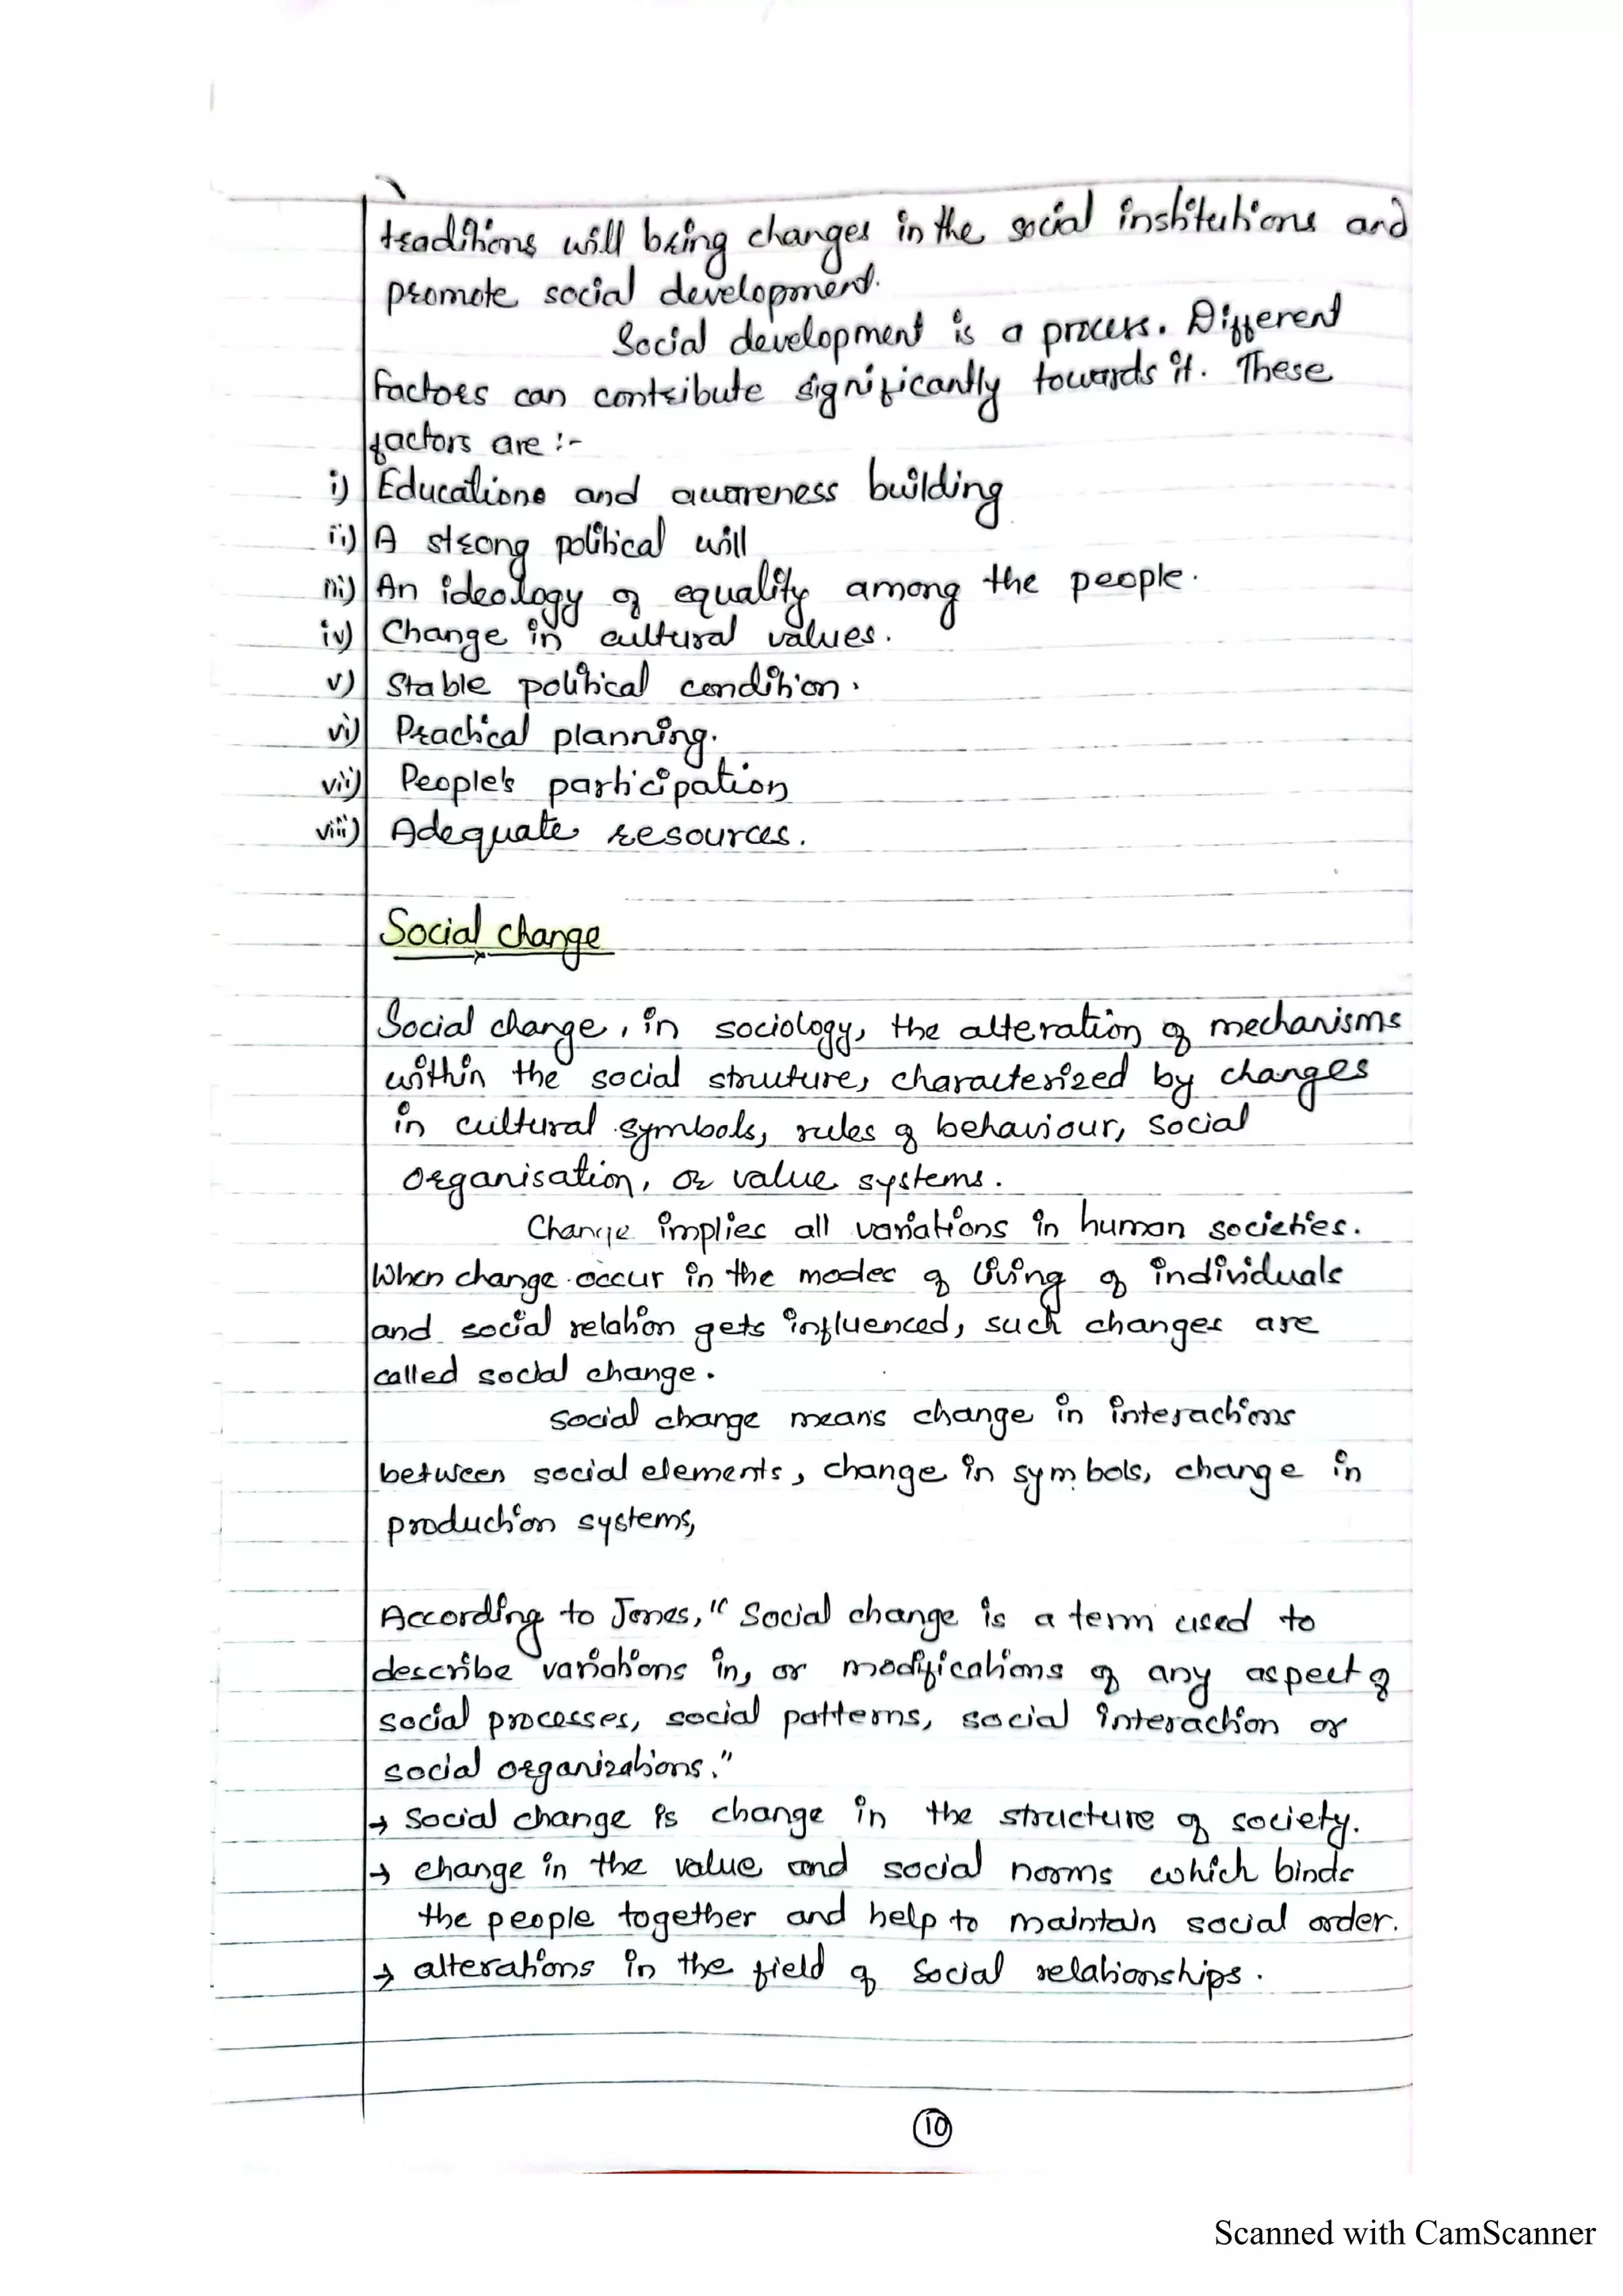 traditions will bring changes in the social institutions and
promote social development.
Social development is a process. Different
Factors can contribute significantly towards it. These
factors are :-
i) Educations and awareness building
ii) A strong political will
iii) An ideology of equality among the people.
iv) Change in cultural values.
v) Stable political condition.
vi) Practical planning.
vii) People's participation
viii) Adequate resources.
Social change
Social change, in sociology, the alteration of mechanisms
within the social structure, characterized by changes
in cultural symbols, rules of behaviour, social
organisation, or value systems.
Change implies all variations in human societies.
When change occur in the modes of living of individuals
and social relation gets influenced, such changes are
called social change.
Social change means change in interactions
between social elements, change in symbols, change in
production systems,
According to Jones, "Social change is a term used to
describe variations in, or modifications of any aspect of
social processes, social patterns, social interaction or
social organizations."
→ Social change is change in the structure of society.
→ change in the value and social norms which binds
the people together and help to maintain social order.
→ alterations in the field of social relationships.
10
Scanned with CamScanner